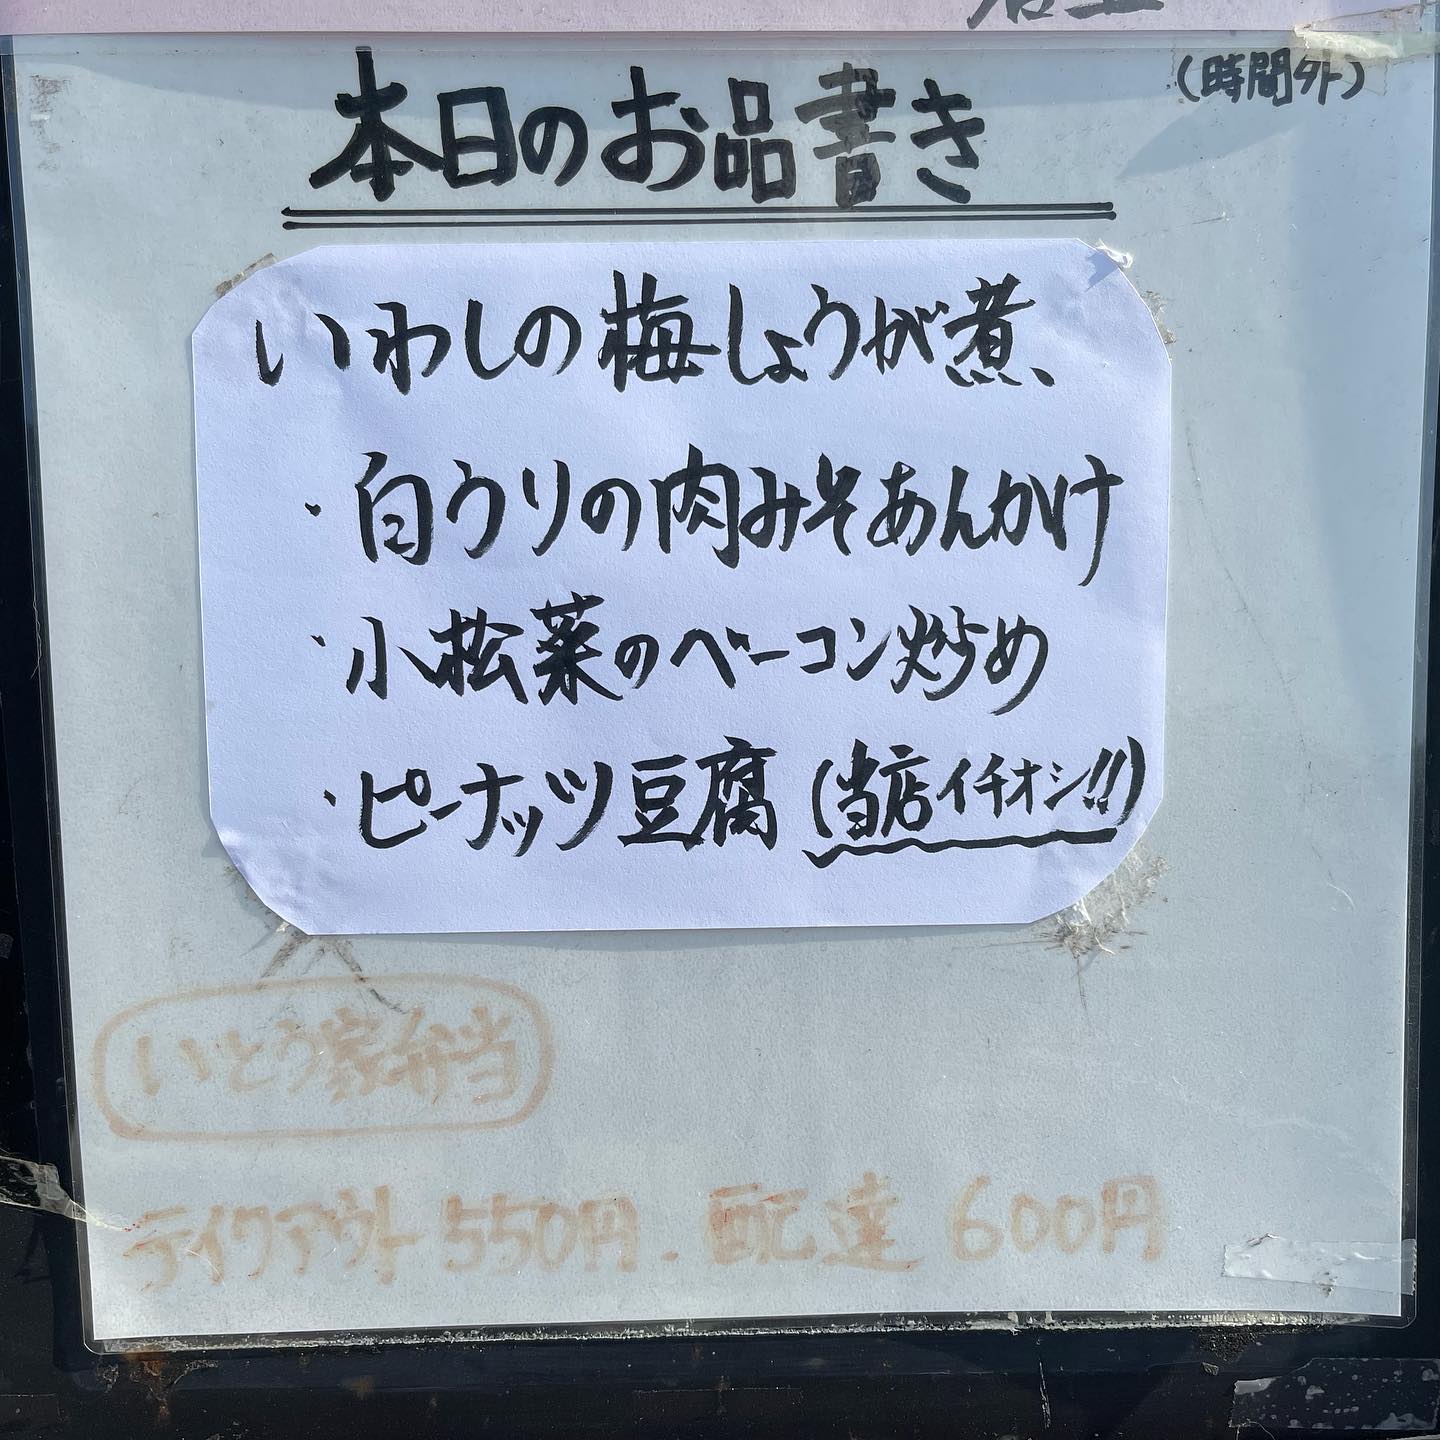 (時間外)
本日のお品書き
いわしの梅しょうが煮、
・白ウリの肉みそあんかけ
・小松菜のベーコン炒め
・ピーナッツ豆腐(当店イチオシ!!)
いとう家弁当
テイクアウト550円.配達600円